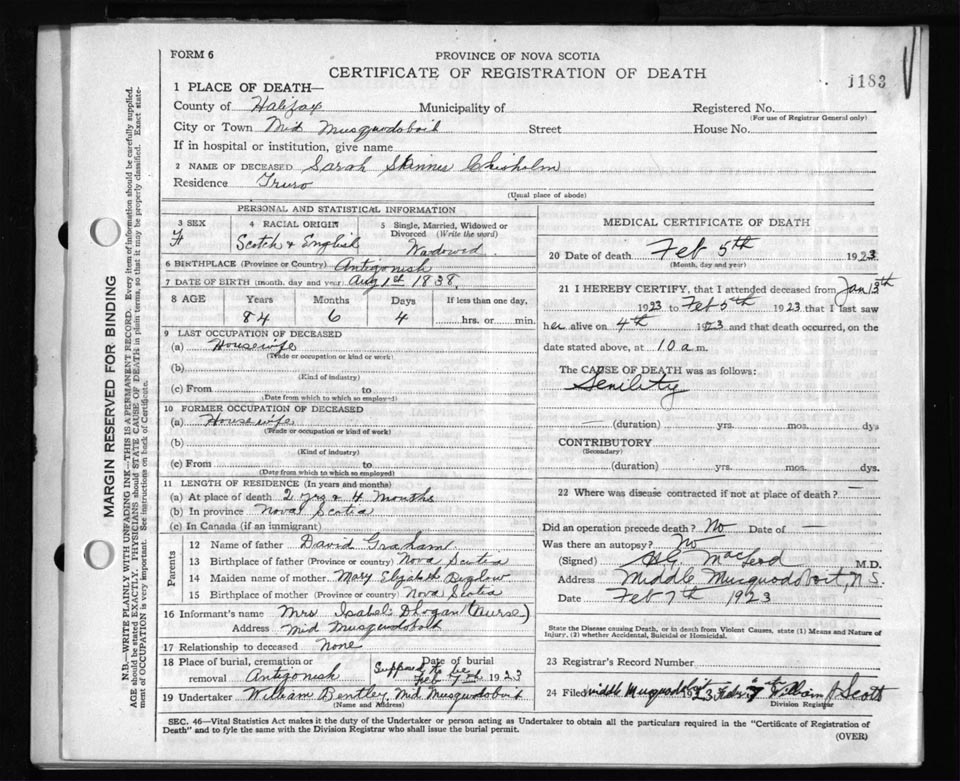 FORM 6
PROVINCE OF NOVA SCOTIA
CERTIFICATE OF REGISTRATION OF DEATH
1183
1 PLACE OF DEATH—
County of Halifax Municipality of Registered No.
(For use of Registrar General only)
City or Town Mid Musquodoboit Street House No.
If in hospital or institution, give name
2 NAME OF DECEASED Sarah Skinner Chisholm
Residence Truro
(Usual place of abode)
PERSONAL AND STATISTICAL INFORMATION
3 SEX F
4 RACIAL ORIGIN Scotch & English
5 Single, Married, Widowed or Divorced (Write the word) Wardowed
6 BIRTHPLACE (Province or Country) Antigonish
7 DATE OF BIRTH (month, day and year) Aug 1st 1838,
8 AGE Years Months Days If less than one day,
84 6 4 hrs. or min.
9 LAST OCCUPATION OF DECEASED
(a) Housewife
(Trade or occupation or kind of work)
(b)
(Kind of industry)
(c) From to
(Date from which to which so employed)
10 FORMER OCCUPATION OF DECEASED
(a) Housewife
(Trade or occupation or kind of work)
(b)
(Kind of industry)
(c) From to
(Date from which to which so employed)
11 LENGTH OF RESIDENCE (In years and months)
(a) At place of death 2 yrs & 4 months
(b) In province Nova Scotia
(c) In Canada (if an immigrant)
Parents
12 Name of father David Graham
13 Birthplace of father (Province or country) Nova Scotia
14 Maiden name of mother Mary Elizabeth Bigelow
15 Birthplace of mother (Province or country) Nova Scotia
16 Informant's name Mrs Isabel (Nurse)
Address Mid Musquodoboit
17 Relationship to deceased None
18 Place of burial, cremation or removal Antigonish
Date of burial Supposed to be Feb 7th 1923
19 Undertaker William Bentley, Mid Musquodoboit
(Name and Address)
MEDICAL CERTIFICATE OF DEATH
20 Date of death Feb 5th 1923
(Month, day and year)
21 I HEREBY CERTIFY, that I attended deceased from Jan 13th
1923 to Feb 5th 1923 that I last saw
her alive on 4th 1923 and that death occurred, on the
date stated above, at 10 a m.
The CAUSE OF DEATH was as follows:
Senility
— (duration) yrs. mos. dys
CONTRIBUTORY
(Secondary)
(duration) yrs. mos. dys.
22 Where was disease contracted if not at place of death? —
Did an operation precede death? No Date of —
Was there an autopsy? No
(Signed) MacLeod M.D.
Address Middle Musquodoboit, N.S.
Date Feb 7th 1923
State the Disease causing Death, or in death from Violent Causes, state (1) Means and Nature of
Injury, (2) whether Accidental, Suicidal or Homicidal.
23 Registrar's Record Number
24 Filed Middle Musquodoboit 1923 William Scott
Division Registrar
SEC. 46—Vital Statistics Act makes it the duty of the Undertaker or person acting as Undertaker to obtain all the particulars required in the "Certificate of Registration of
Death" and to fyle the same with the Division Registrar who shall issue the burial permit.
(OVER)
MARGIN RESERVED FOR BINDING
N.B.—WRITE PLAINLY WITH UNFADING INK—THIS IS A PERMANENT RECORD. Every item of information should be carefully supplied.
AGE should be stated EXACTLY. PHYSICIANS should STATE CAUSE OF DEATH in plain terms, so that it may be properly classified. Exact state-
ment of OCCUPATION is very important. See instructions on back of Certificate.